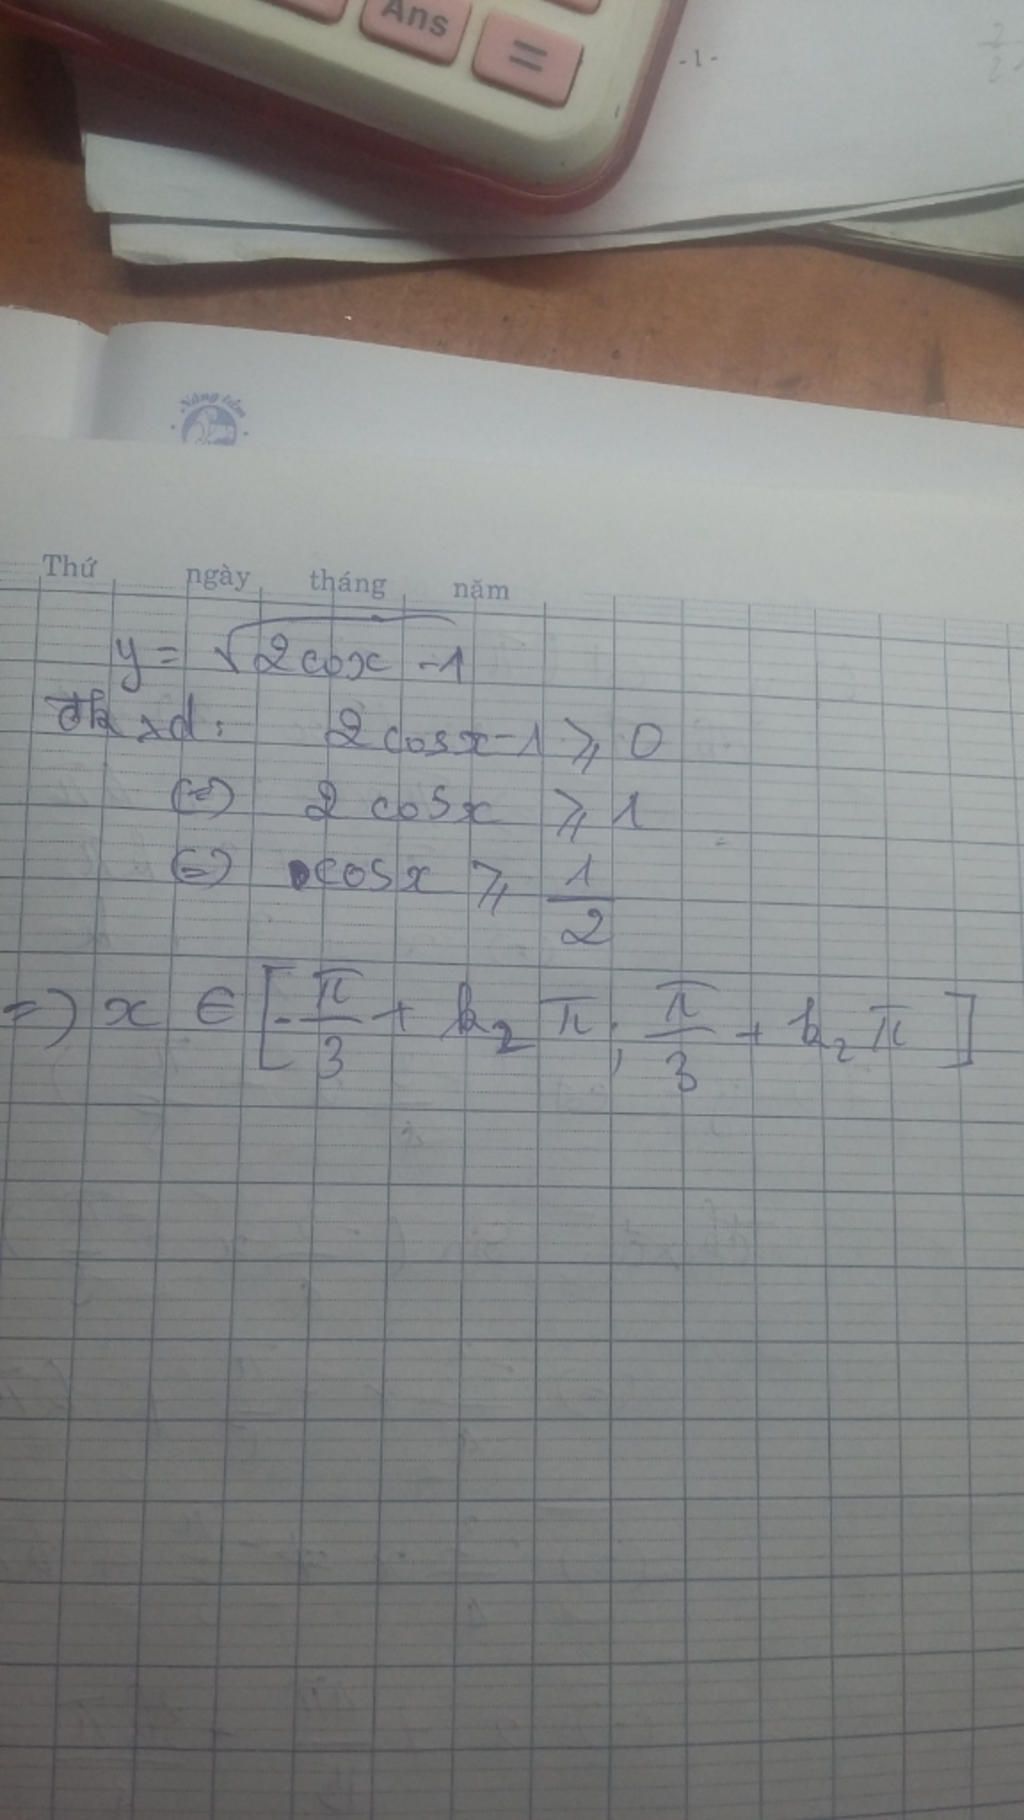 Ans
=
- 1 -
Nâng tầm
Thứ ngày tháng năm
y = √(2cosx - 1)
đk xđ: 2cosx - 1 ⩾ 0
(=) 2 cosx ⩾ 1
(=) cosx ⩾ 1/2
=) x ∈ [-π/3 + k2π; π/3 + k2π]